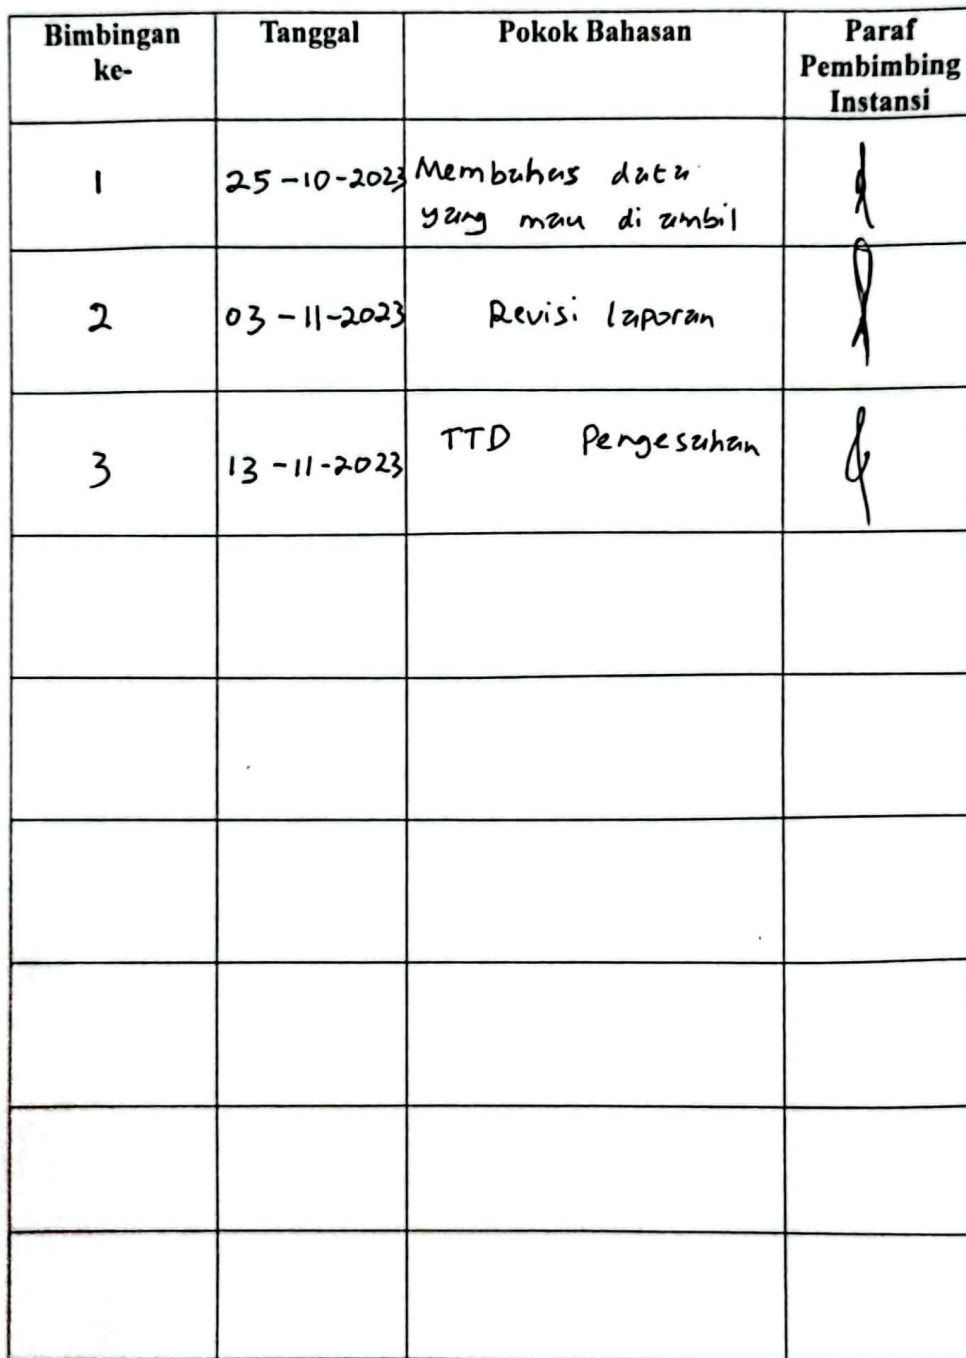 Bimbingan Tanggal Pokok Bahasan Paraf
ke- Pembimbing
Instansi
1 25-10-2023 Membahas data
yang mau di ambil
2 03-11-2023 Revisi laporan
3 13-11-2023 TTD Pengesahan